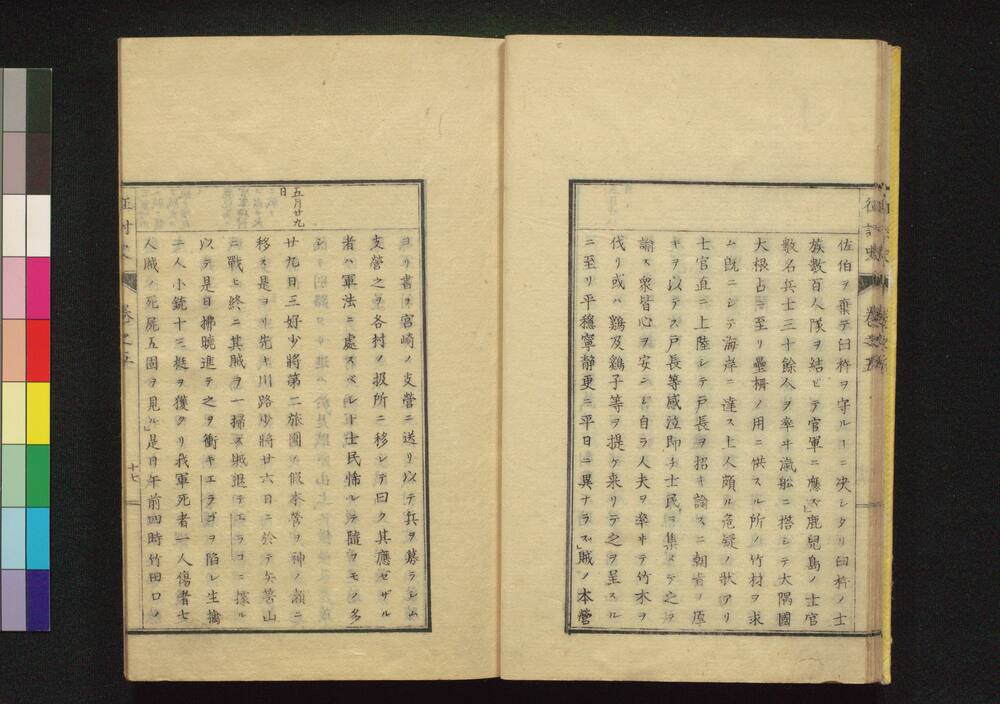 佐伯ヲ棄テ臼杵ヲ守ルーニ决シタリ臼杵ノ士
族數百人隊ヲ結ビテ官軍ニ應ズ」鹿兒島ノ士官
數名兵士三十餘人ヲ率ヰ滊船ニ搭シテ大隅國
大根占ニ至リ壘柵ノ用ニ供スル所ノ竹材ヲ求
ム既ニシテ海岸ニ達ス土人頗ル危疑ノ狀アリ
士官直ニ上陸シテ戸長ヲ招キ諭スニ朝旨ノ厚
キヲ以テス戸長等感泣即チ士民ヲ集メテ之ヲ
諭ス衆皆心ヲ安ンじ自ラ人夫ヲ率ヰテ竹木ヲ
伐リ或ハ鷄及鷄子等ヲ提ケ来リテ之ヲ呈スル
ニ至リ平穏寧静更ニ平日ニ異ナラズ」賊ノ本營
征討史 卷之五
ヨリ書ヲ宮崎ノ支營ニ送リ以テ兵ヲ募ラシム
支營之ヲ各村ノ扱所ニ移シテ曰ク其應ゼザル
者ハ軍法ニ處スベシト士民怖レテ隨フモノ多
五月廿九日
廿九日三好少將第二旅團ノ假本營ヲ神ノ瀬ニ
移ス是ヨリ先キ川路少將廿六日ニ於テ矢筈山
ニ戰ヒ終ニ其賊ヲ一掃ス賊退テエラコニ據ル
以テ是日拂曉進テ之ヲ衝キエラゴヲ陷レ生擒
一人小銃十三挺ヲ獲タリ我軍死者一人傷者七
人賊ノ死屍五箇ヲ見ル」是日午前四時竹田口ノ
征討史 卷之五 十七